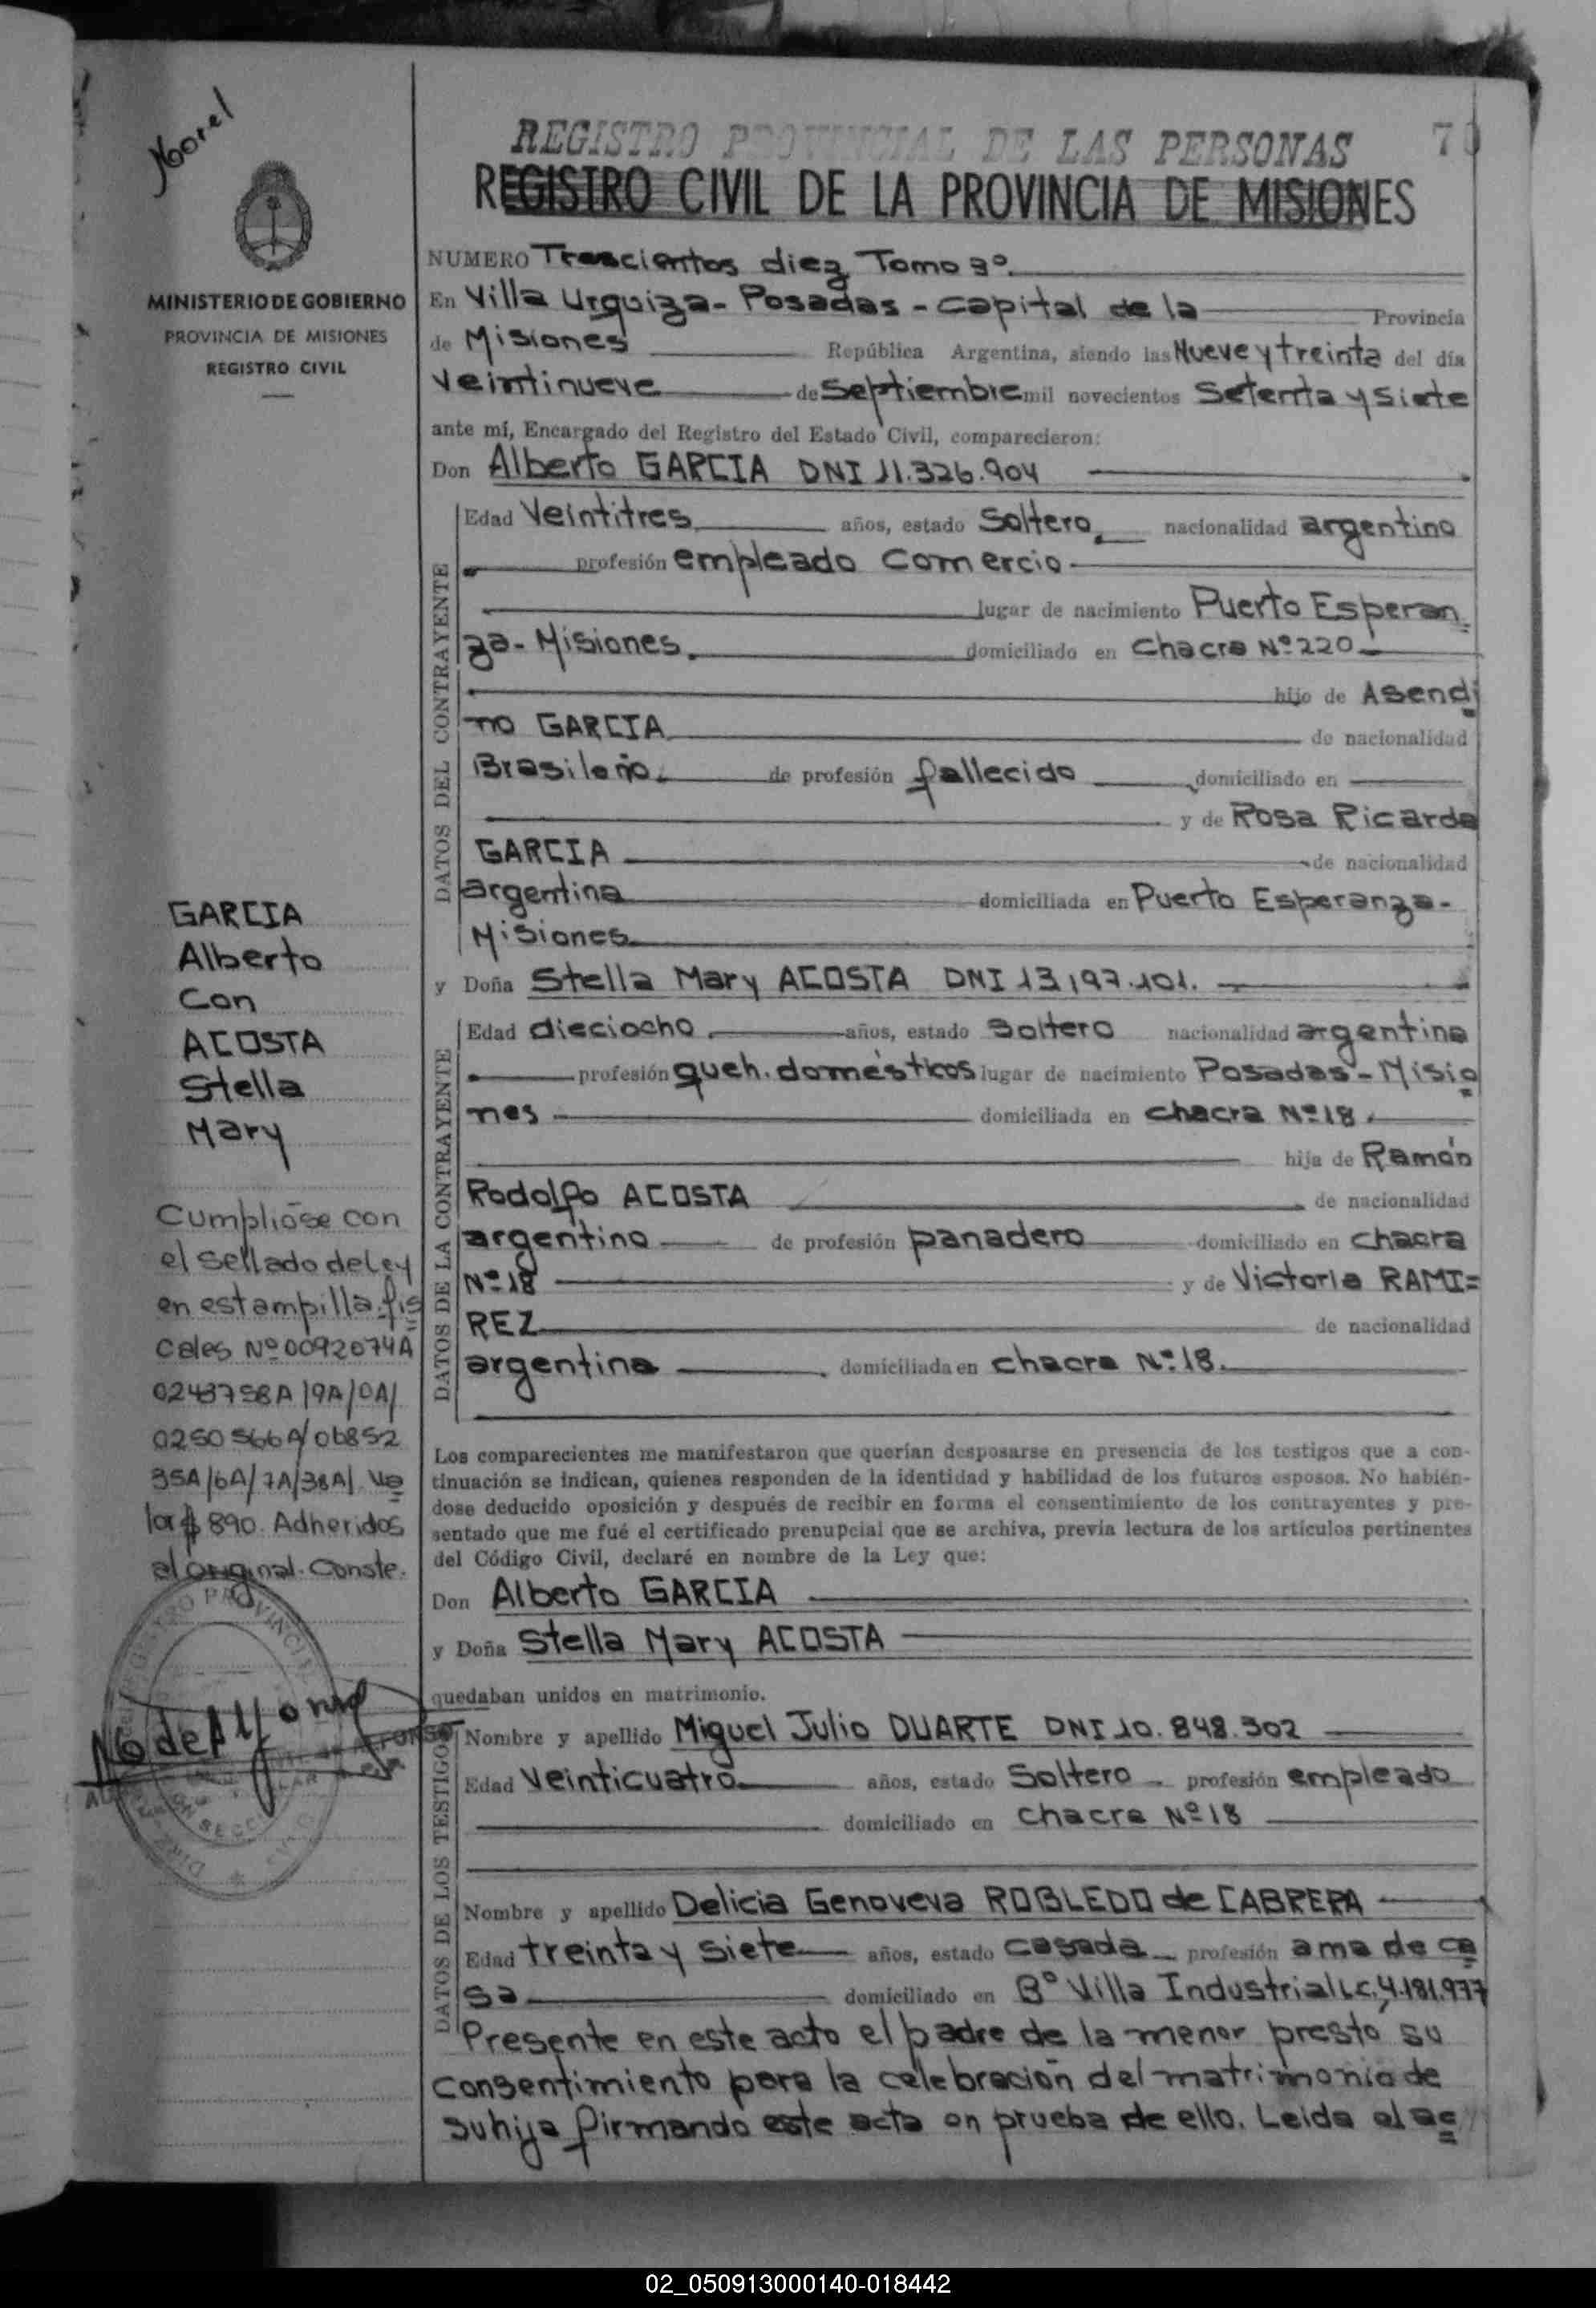 Morel
REGISTRO PROVINCIAL DE LAS PERSONAS 70
REGISTRO CIVIL DE LA PROVINCIA DE MISIONES
MINISTERIO DE GOBIERNO
PROVINCIA DE MISIONES
REGISTRO CIVIL
NUMERO Trescientos diez Tomo 3º.
En Villa Urquiza - Posadas - capital de la Provincia
de Misiones República Argentina, siendo las Nueve y treinta del día
Veintinueve de Septiembre mil novecientos Setenta y Siete
ante mí, Encargado del Registro del Estado Civil, comparecieron:
Don Alberto GARCIA DNI 11.326.904
DATOS DEL CONTRAYENTE
Edad Veintitres años, estado Soltero, nacionalidad argentino
profesión empleado Comercio
lugar de nacimiento Puerto Esperan
za - Misiones. domiciliado en Chacra Nº 220
hijo de Asendi
no GARCIA de nacionalidad
Brasileño. de profesión fallecido domiciliado en
y de Rosa Ricarda
GARCIA de nacionalidad
argentina domiciliada en Puerto Esperanza-
Misiones
y Doña Stella Mary ACOSTA DNI 13.197.101.
DATOS DE LA CONTRAYENTE
Edad dieciocho. años, estado Soltero nacionalidad argentina
profesión queh. domésticos lugar de nacimiento Posadas - Misio
nes domiciliada en chacra Nº 18.
hija de Ramón
Rodolfo ACOSTA de nacionalidad
argentino de profesión panadero domiciliado en chacra
Nº 18 y de Victoria RAMI=
REZ de nacionalidad
argentina domiciliada en chacra Nº 18.
Los comparecientes me manifestaron que querían desposarse en presencia de los testigos que a con-
tinuación se indican, quienes responden de la identidad y habilidad de los futuros esposos. No habién-
dose deducido oposición y después de recibir en forma el consentimiento de los contrayentes y pre-
sentado que me fué el certificado prenupcial que se archiva, previa lectura de los artículos pertinentes
del Código Civil, declaré en nombre de la Ley que:
Don Alberto GARCIA
y Doña Stella Mary ACOSTA
quedaban unidos en matrimonio.
DATOS DE LOS TESTIGOS
Nombre y apellido Miguel Julio DUARTE DNI 10.848.302
Edad Veinticuatro años, estado Soltero profesión empleado
domiciliado en chacra Nº 18
Nombre y apellido Delicia Genoveva ROBLEDO de CABRERA
Edad treinta y siete años, estado casada profesión ama de ca
sa domiciliado en Bº Villa Industrial L.C. 4.181.977
Presente en este acto el padre de la menor prestó su
consentimiento para la celebración del matrimonio de
su hija firmando este acta en prueba de ello. Leida el ac
GARCIA
Alberto
Con
ACOSTA
Stella
Mary
Cumplióse con
el sellado de Ley
en estampilla fis
cales Nº 0092074A
0243758A/9A/0A/
0250566A/06852
35A/6A/7A/38A/ Va
lor $ 890. Adheridos
al Original. Conste.
02_050913000140-018442